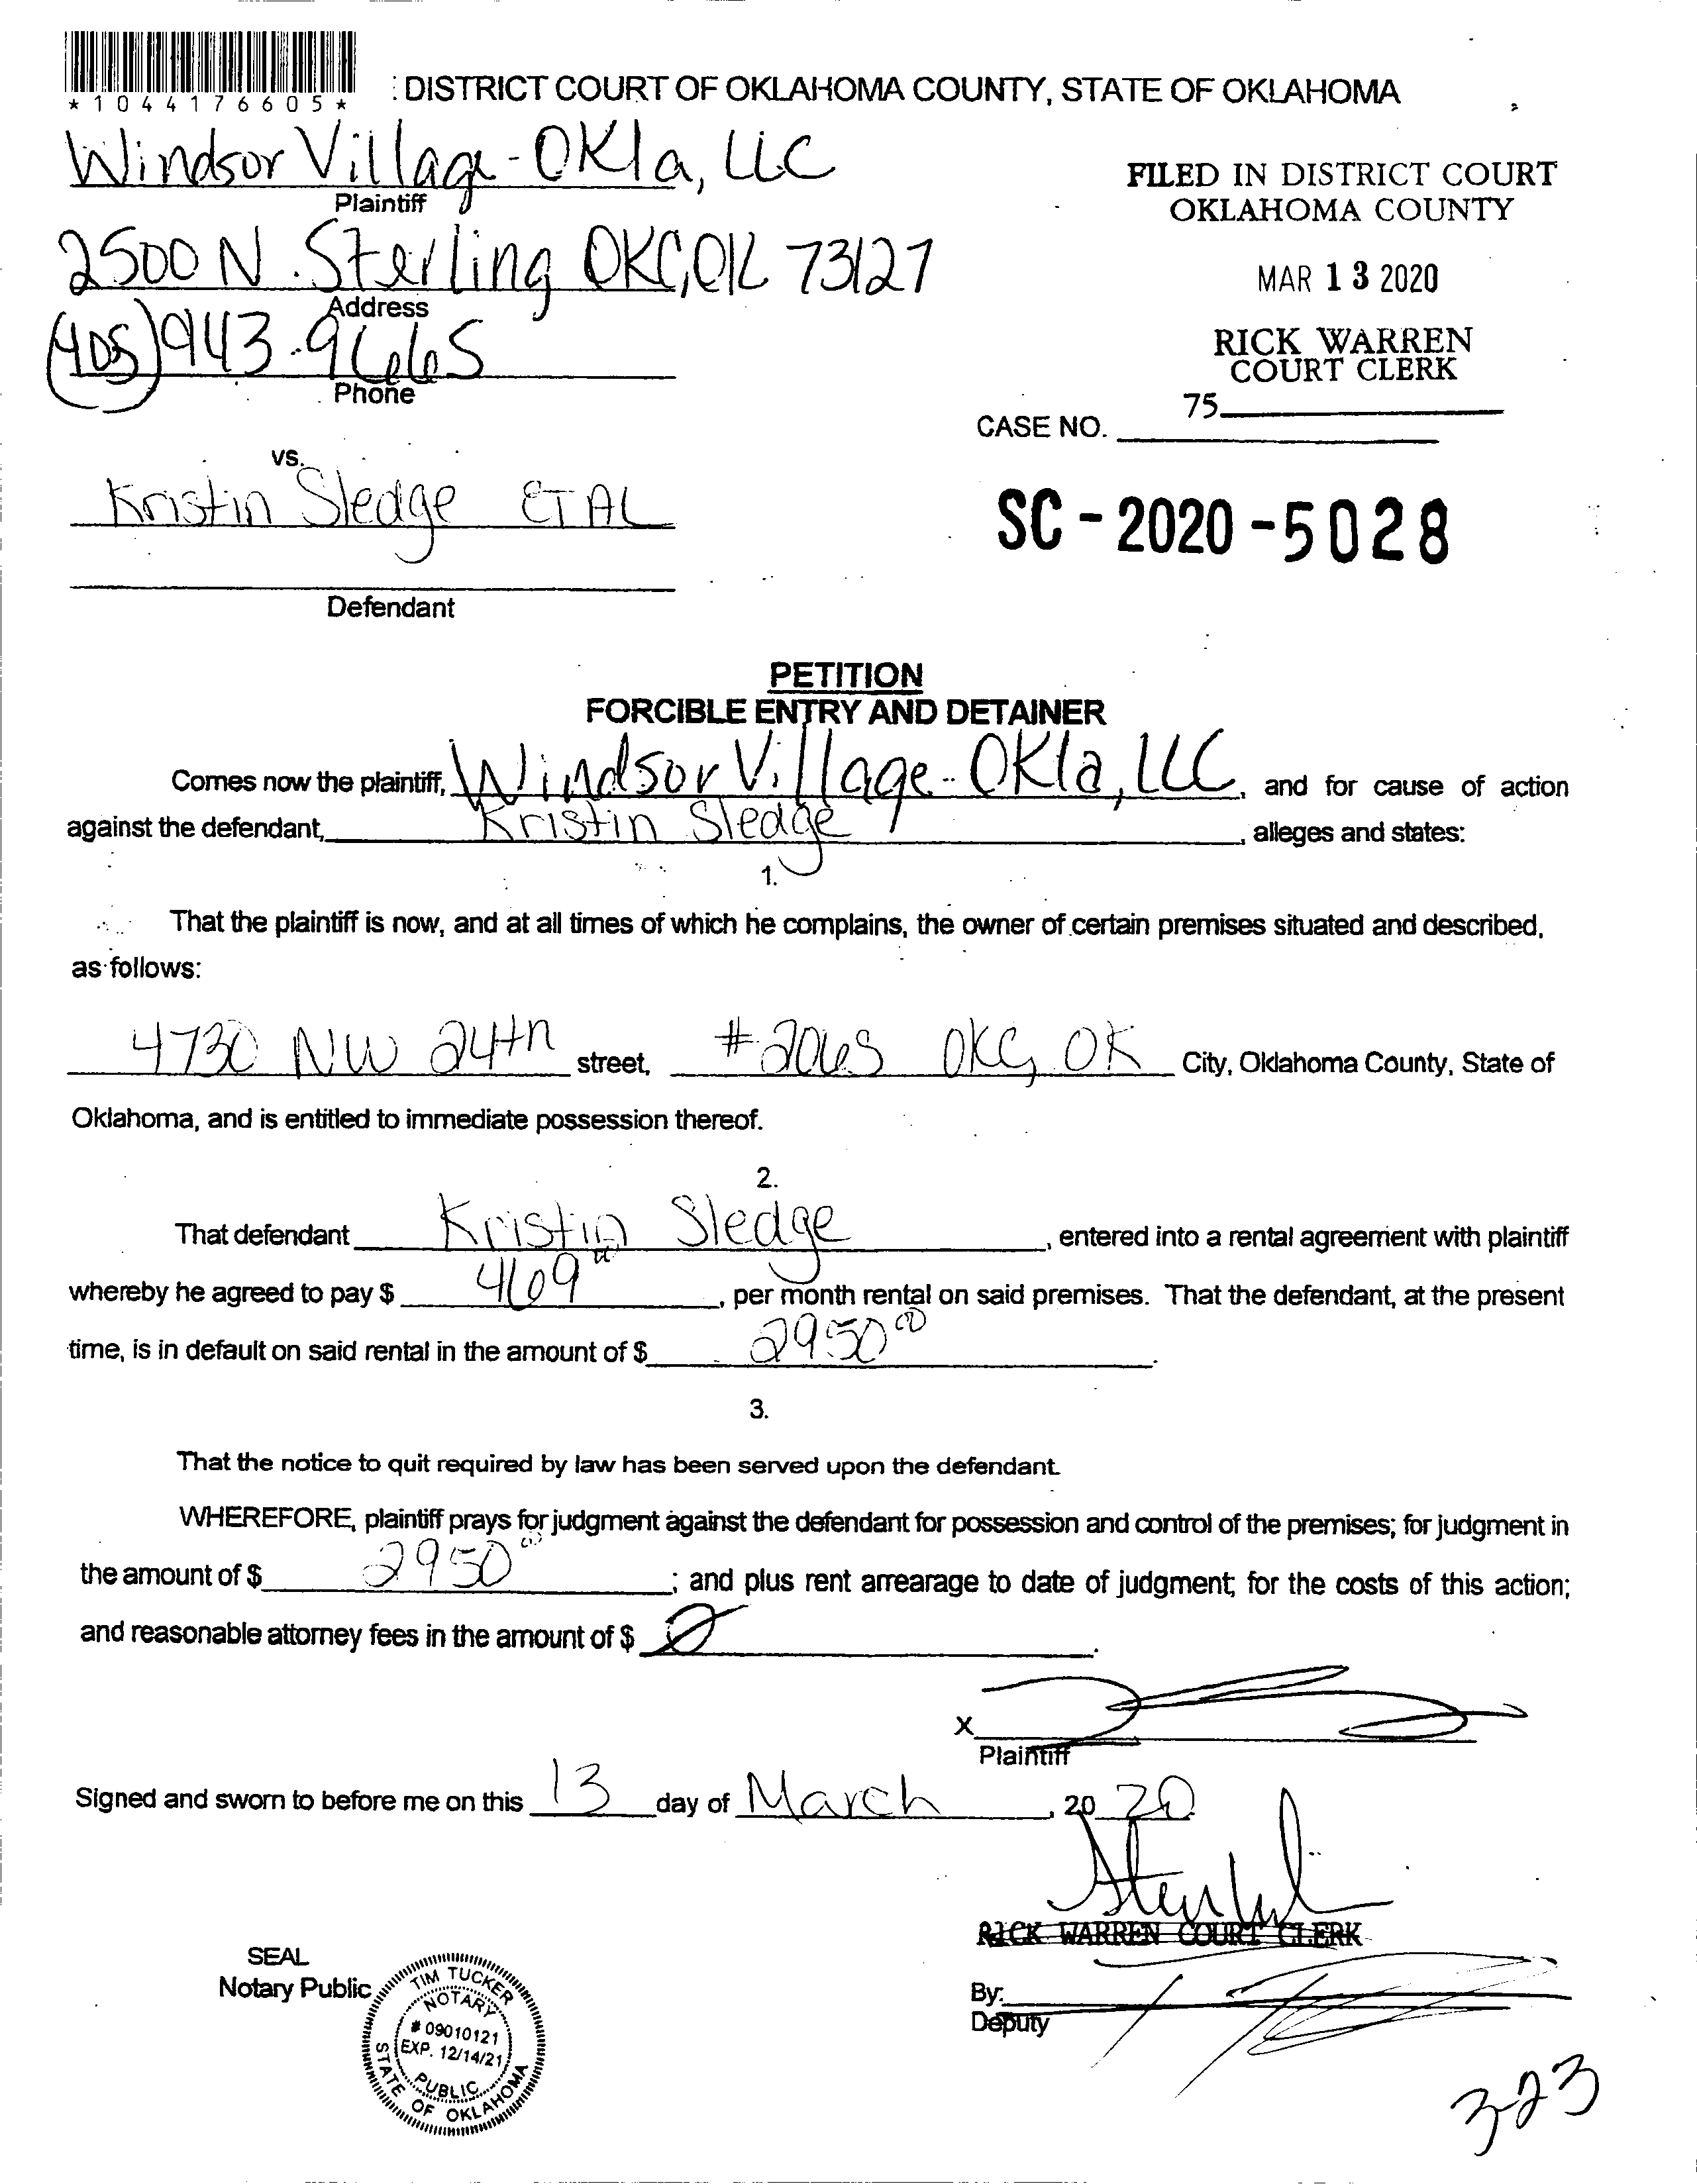 *1044176605*
: DISTRICT COURT OF OKLAHOMA COUNTY, STATE OF OKLAHOMA
Windsor Village-OKla, LLC
Plaintiff
2500 N. Sterling OKC, OK 73127
Address
(405) 943-9665
Phone
FILED IN DISTRICT COURT
OKLAHOMA COUNTY
MAR 13 2020
RICK WARREN
COURT CLERK
75
CASE NO.
SC-2020-5028
vs.
Kristin Sledge ET AL
Defendant
PETITION
FORCIBLE ENTRY AND DETAINER
Comes now the plaintiff, Windsor Village-OKla, LLC, and for cause of action
against the defendant, Kristin Sledge, alleges and states:
1.
That the plaintiff is now, and at all times of which he complains, the owner of certain premises situated and described,
as follows:
4730 NW 24th street, # OKC, OK City, Oklahoma County, State of
Oklahoma, and is entitled to immediate possession thereof.
2.
That defendant Kristin Sledge, entered into a rental agreement with plaintiff
whereby he agreed to pay $ , per month rental on said premises. That the defendant, at the present
time, is in default on said rental in the amount of $ 2950 00.
3.
That the notice to quit required by law has been served upon the defendant.
WHEREFORE, plaintiff prays for judgment against the defendant for possession and control of the premises; for judgment in
the amount of $ 2950 00; and plus rent arrearage to date of judgment; for the costs of this action;
and reasonable attorney fees in the amount of $ 0.
X
Plaintiff
Signed and sworn to before me on this 13 day of March, 2020
RICK WARREN COURT CLERK
SEAL
Notary Public
TIM TUCKER
NOTARY
# 09010121
EXP. 12/14/21
PUBLIC
STATE OF OKLAHOMA
By:
Deputy
323